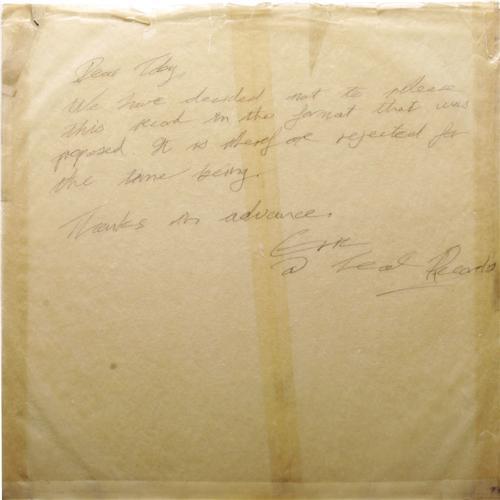 Dear Toby,
We have decided not to release
this record in the format that was
proposed. It is therefore rejected for
the time being.
Thanks in advance.
@ Teal Records